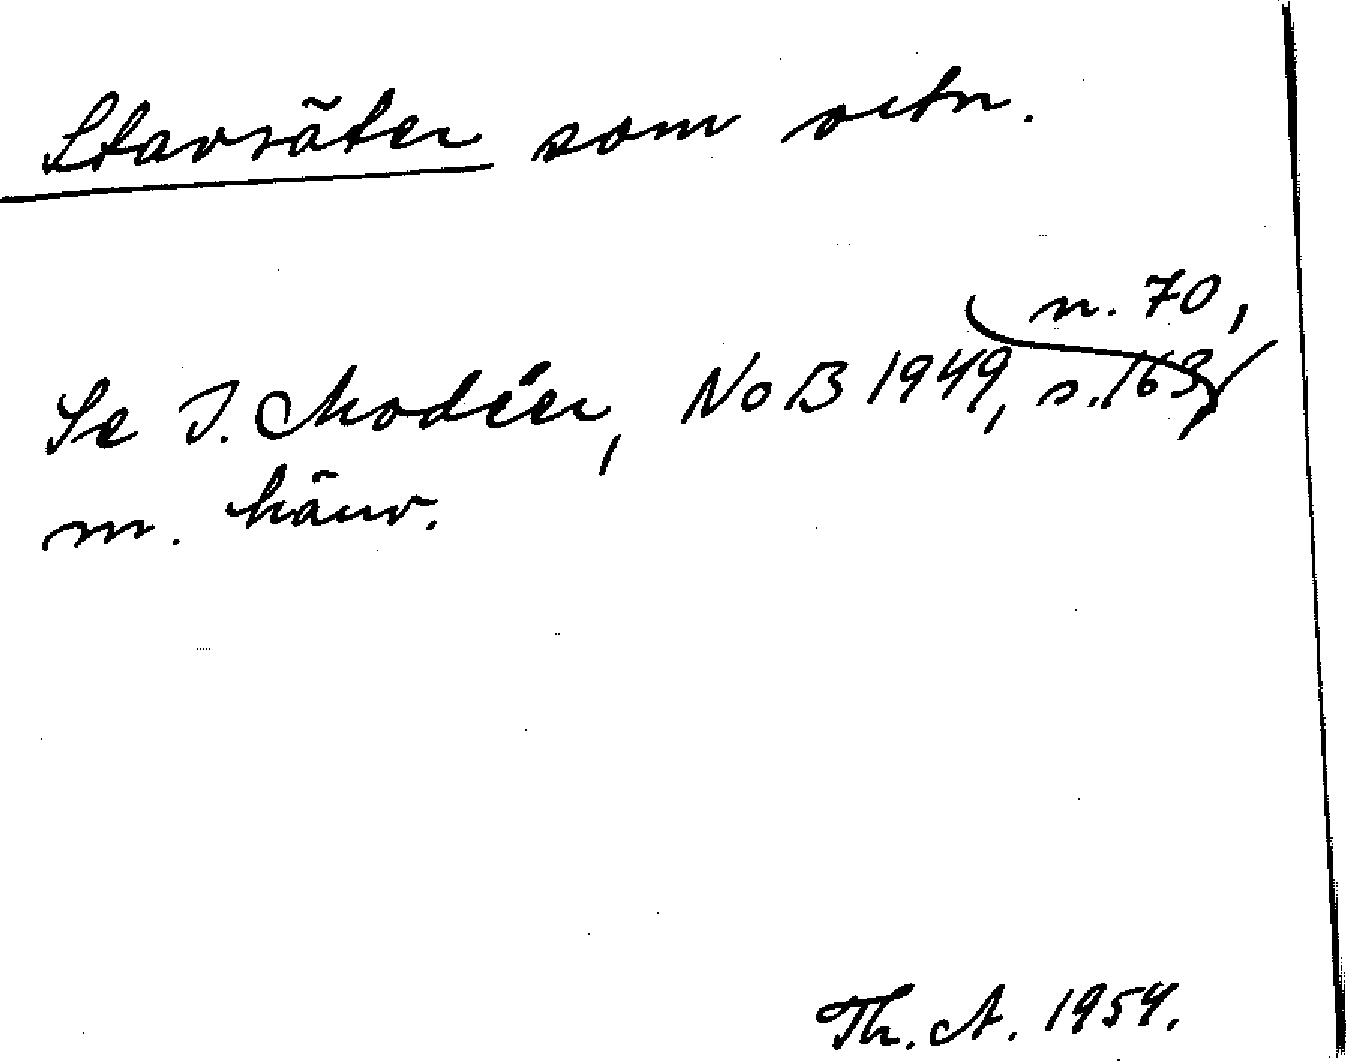 Stavsäter som ortn.
n. 70,
Se I. Modéer, NoB 1949, s. 163,
m. hänv.
Th. A. 1954.